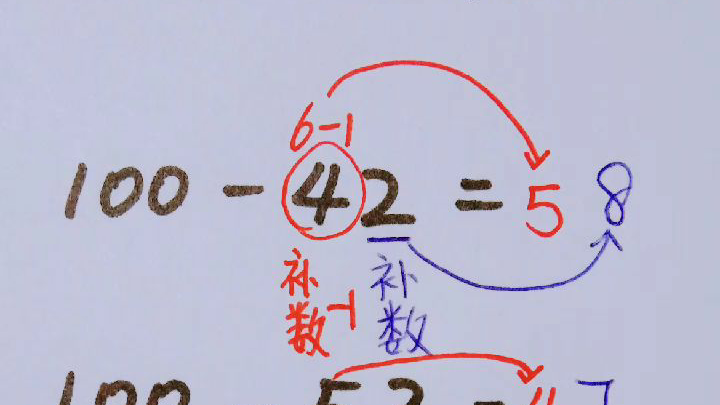 6-1
100 - 42 = 5 8
补数-1 补数
100 53 = 47